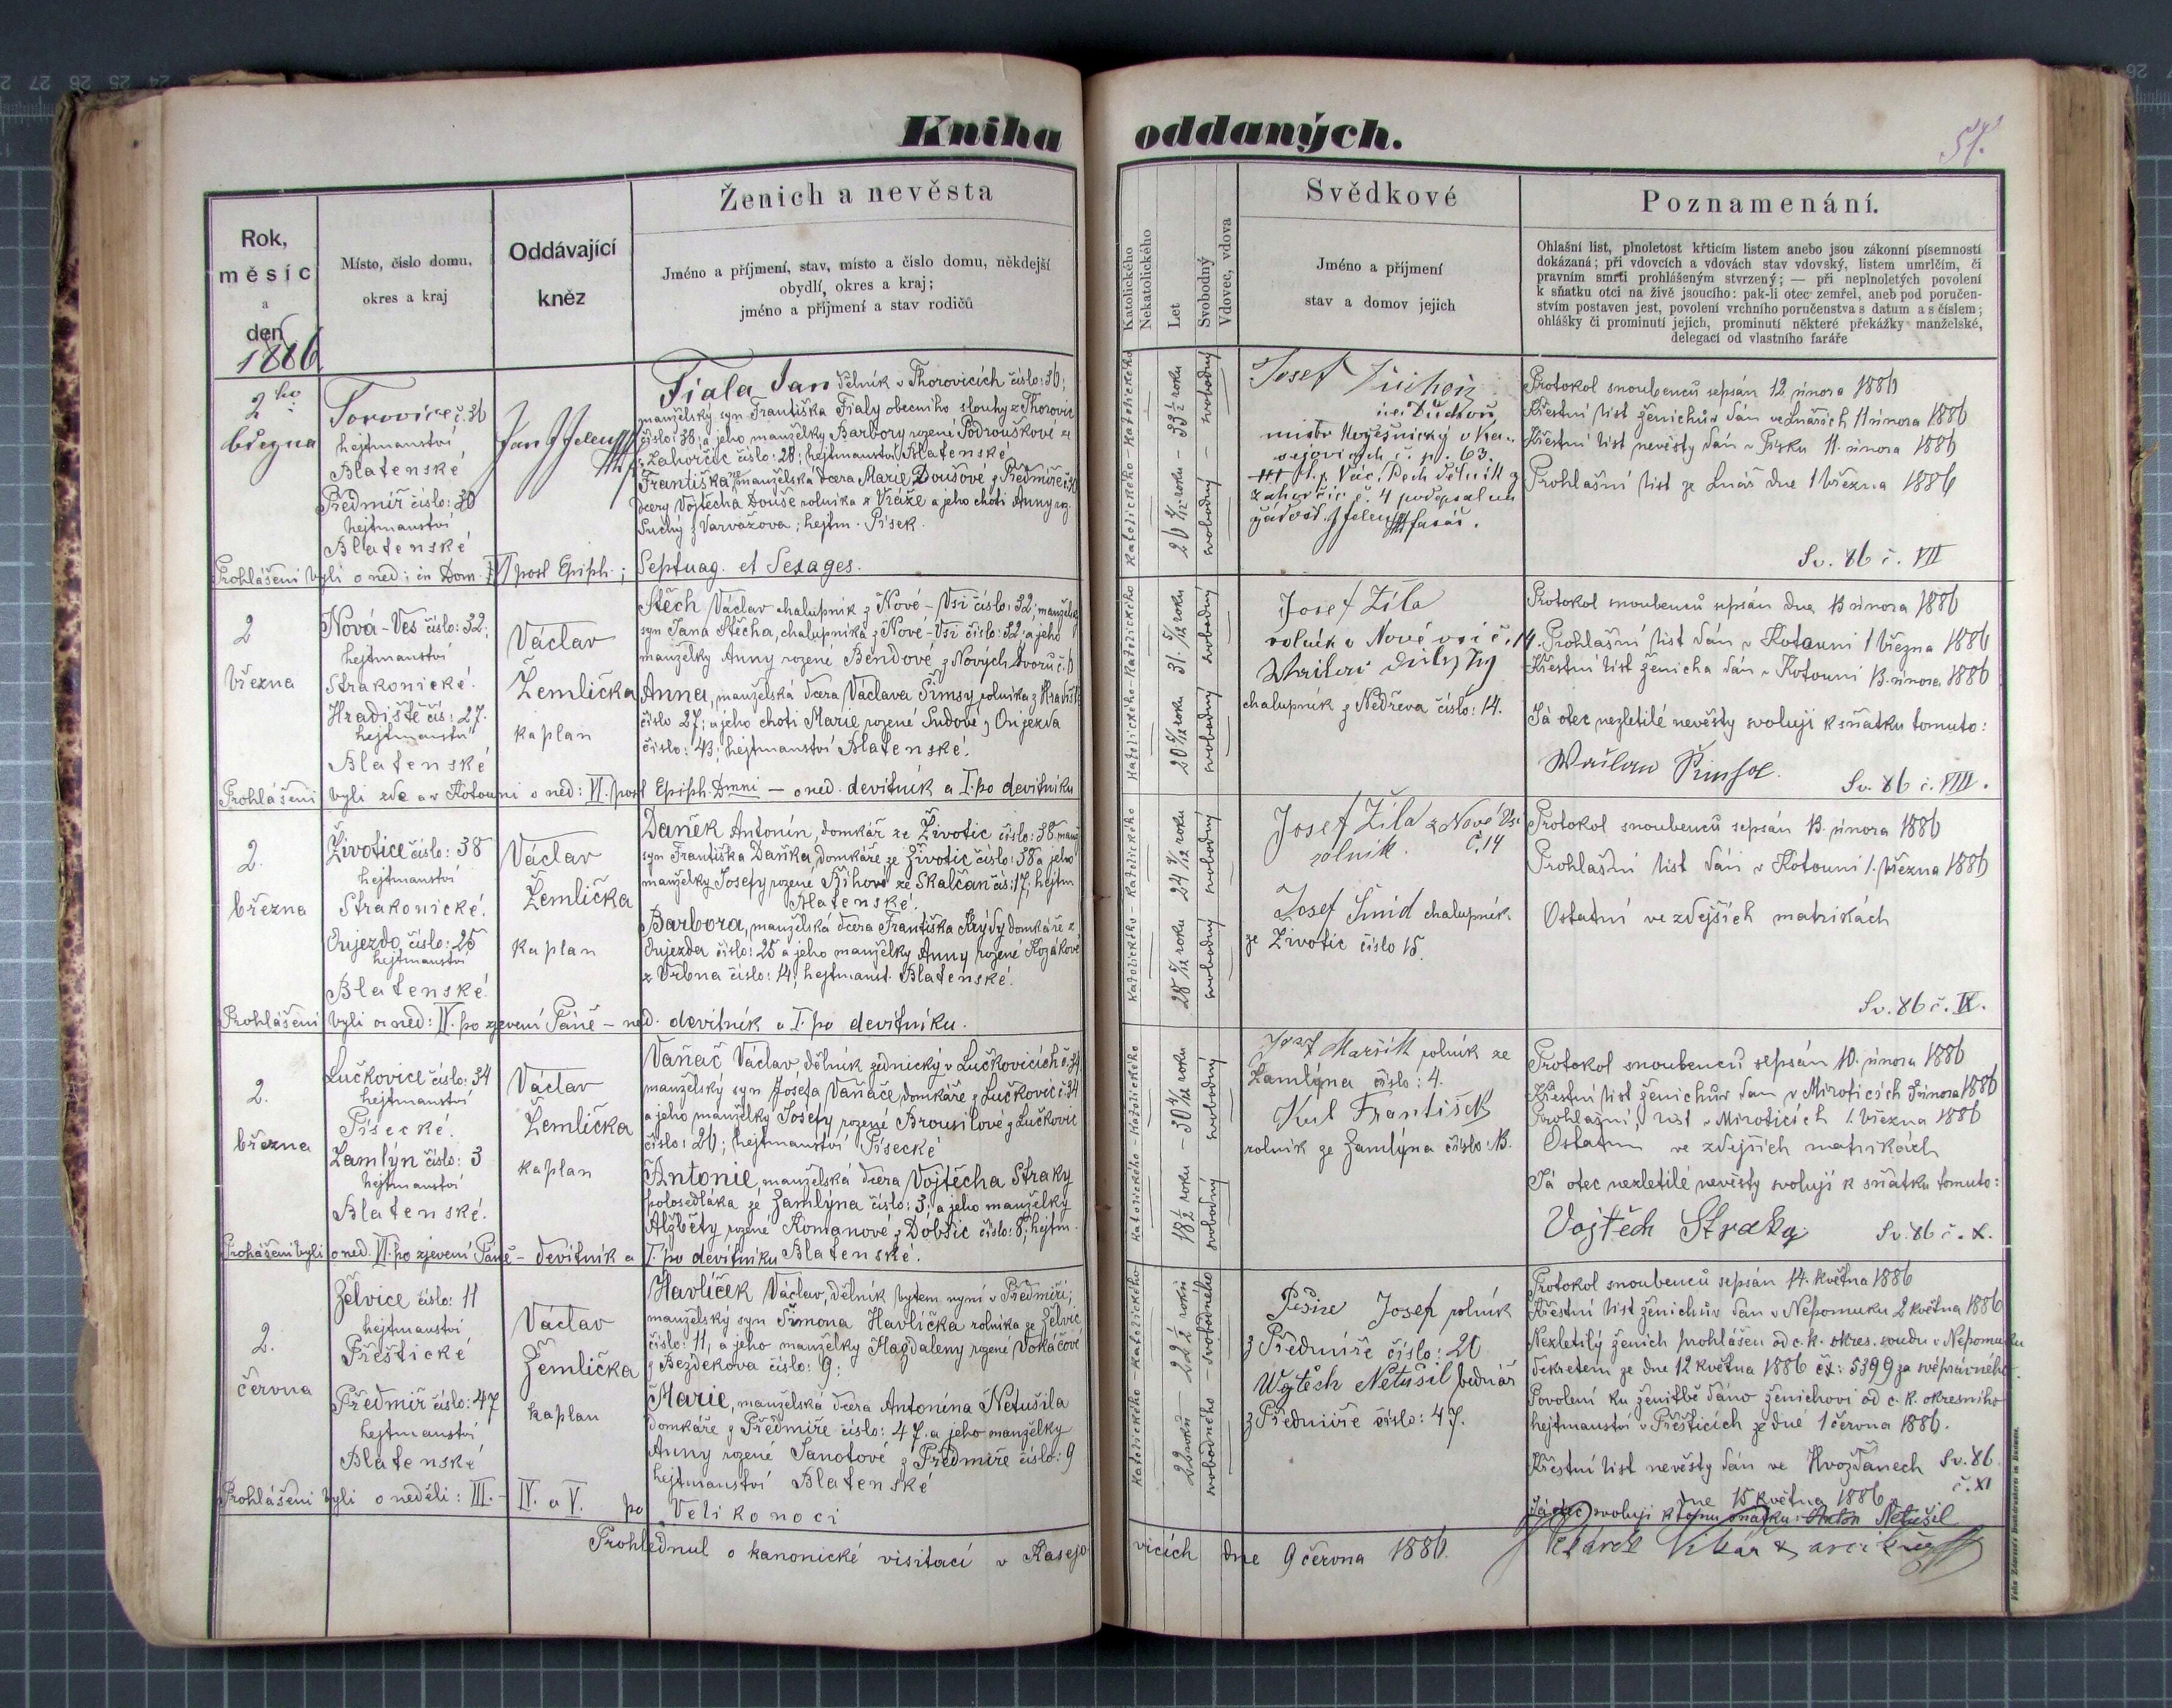 Kniha oddaných.
57.
Rok,
měsíc
a
den
1886
Místo, číslo domu,
okres a kraj
Oddávající
kněz
Ženich a nevěsta
Jméno a příjmení, stav, místo a číslo domu, někdejší
obydlí, okres a kraj;
jméno a příjmení a stav rodičů
Katolického
Nekatolického
Let
Svobodný
Vdovec, vdova
Svědkové
Jméno a příjmení
stav a domov jejich
Poznamenání.
Ohlašní list, plnoletost křticím listem anebo jsou zákonní písemností
dokázaná; při vdovcích a vdovách stav vdovský, listem umrlčím, či
pravním smrti prohlášeným stvrzený; — při neplnoletých povolení
k sňatku otci na živě jsoucího: pak-li otec zemřel, aneb pod poručen-
stvím postaven jest, povolení vrchního poručenstva s datum a s číslem;
ohlášky či prominutí jejich, prominutí některé překážky manželské,
delegací od vlastního faráře
2ho
března
Torovice č. 36
hejtmanství
Blatenské
Předmíř číslo: 30
hejtmanství
Blatenské
Fiala Jan dělník v Thorovicích číslo: 36;
manželský syn Františka Fialy obecního slouhy z Thorovic
číslo: 38; a jeho manželky Barbory rozené Podrouškové
z Zahorčic číslo: 28; hejtmanství Blatenské
Františka nemanželská dcera Marie Doušové z Předmíře
dcery Vojtěcha Douše rolníka z Vráže a jeho choti Anny roz.
Suchý z Varvažova; hejtm. Písek.
Prohlášeni byli o ned: in Dom. post Epiph.; Septuag. et Sexages.
Katolického - Katolického
33 ½ roku
svobodný - svobodný
Josef
č. p. 63.
Vác. Pech dělník z
Zahorčic č. 4 podepsal na
žádost farář.
Protokol snoubenců sepsán 12 února 1886
Křestní list ženichův dán ve Lnářích 11 února 1886
Křestní list nevěsty dán v Písku 11. února 1886
Prohlašní list ze Lnář dne 1 března 1886
Sv. 86 č. VII
2
března
Nová-Ves číslo: 32;
hejtmanství
Strakonické.
Hradiště čís: 27.
hejtmanství
Blatenské
Václav
Žemlička
kaplan
Stěch Václav chalupník z Nové-Vsi číslo: 32; manželský
syn Jana Stěcha, chalupníka z Nové-Vsi číslo: 32; a jeho
manželky Anny rozené Bendové z Nových Dvorů č. 6
Anna, manželská dcera Václava Šimsy rolníka z Hradiště
číslo 27; a jeho choti Marie rozené Sudové z Oujezda
číslo: 43; hejtmanství Blatenské.
Prohlášeni byli zde a v Kotouni o ned: VI. post Epiph. Dmni — o ned. devítník a I. po devítníku
Katolického - Katolického
20 5/12 roku 31. 5/12 roku
svobodný svobodný
Josef Žíla
rolník v Nové vsi č. 14.
chalupník z Nedřeva číslo: 14.
Protokol snoubenců sepsán dne 13 února 1886
Prohlašní list dán v Kotouni 1 března 1886
Křestní list ženicha dán v Kotouni 13. února 1886
Já otec nezletilé nevěsty svoluji k sňatku tomuto:
Sv. 86 č. VIII.
2.
března
Životice číslo: 38
hejtmanství
Strakonické.
Oujezdo číslo: 25
hejtmanství
Blatenské.
Václav
Žemlička
kaplan
Daněk Antonín, domkář ze Životic číslo: 38 manž.
syn Františka Daňka, domkáře ze Životic číslo: 38 a jeho
manželky Josefy rozené Říhové ze Skalčan čís: 17; hejtm
Blatenské.
Barbora, manželská dcera Františka Krýdy domkáře z
Oujezda číslo: 25 a jeho manželky Anny rozené Kozákové
z Vrbna číslo: 14; hejtmanst. Blatenské.
Prohlášeni byli o ned: po zjevení Páně - ned. devítník a I. po devítníku.
Katolického - Katolického
svobodný svobodný
Josef Žíla z Nové Vsi
rolník. č. 14
Josef Šmíd chalupník
ze Životic číslo 15.
Protokol snoubenců sepsán 13. února 1886
Prohlašní list dán v Kotouni 1. března 1886
Ostatní ve zdejších matrikách
Sv. 86 č. IX.
2.
března
Lučkovice číslo: 34
hejtmanství
Písecké.
Zamlýn číslo: 3
hejtmanství
Blatenské.
Václav
Žemlička
kaplan
Vaňač Václav, dělník zednický v Lučkovicích č. 34.
manželský syn Josefa Vaňače, domkáře z Lučkovic č. 34
a jeho manželky Josefy rozené Brousilové z Lučkovic
číslo: 26; hejtmanství Písecké
Antonie, manželská dcera Vojtěcha Straky
polosedláka ze Zamlýna číslo: 3; a jeho manželky
Alžběty rozené Romanové z Dobšic číslo: 8; hejtm.
Prohlášeni byli o ned. VI. po zjevení Páně - devítník a I. po devítníku Blatenské.
Katolického - Katolického
18 ½ roku - roku
svobodný svobodný
Josef Maršík rolník ze
Zamlýna číslo: 4.
Kul František
rolník ze Zamlýna číslo: 13.
Protokol snoubenců sepsán 10. února 1886
Křestní list ženichův dán v Miroticích února 1886
Prohlašní list v Miroticích 1. března 1886
Ostatní ve zdejších matrikách
Já otec nezletilé nevěsty svoluji k sňatku tomuto:
Vojtěch Straka
Sv. 86 č. X.
2.
června
Želvice číslo: 11
hejtmanství
Přeštické
Předmíř číslo: 47
hejtmanství
Blatenské
Václav
Žemlička
kaplan
Havlíček Václav, dělník bytem nyní v Předmíři;
manželský syn Šimona Havlíčka rolníka ze Želvic
číslo: 11, a jeho manželky Magdaleny rozené Vokáčové
z Bezděkova číslo: 9.
Marie, manželská dcera Antonína Netušila
domkáře z Předmíře číslo: 47. a jeho manželky
Anny rozené Janotové z Předmíře číslo: 9
hejtmanství Blatenské
Prohlášeni byli o neděli: III. - IV. a V. po Velikonoci
Katolického - Katolického
22 roků - 22 ½ roků
svobodného - svobodného
Pešice Josef rolník
z Předmíře číslo: 20
Wojtěch Netušil bednář
z Předmíře číslo: 47.
Protokol snoubenců sepsán 14. května 1886
Křestní list ženichův dán v Nepomuku 2 května 1886
Nezletilý ženich prohlášen od c. k. okres. soudu v Nepomuku
dekretem ze dne 12 května 1886 čx: 5399 za svéprávného.
Povolení ku ženitbě dáno ženichovi od c. k. okresního
hejtmanství v Přešticích ze dne 1 června 1886.
Křestní list nevěsty dán ve Hvožďanech Sv. 86.
dne 15 května 1886. č. XI
Já otec svoluji k tomu sňatku: Anton Netušil
Prohlédnul o kanonické visitací v Kasejovicích dne 9 června 1886.